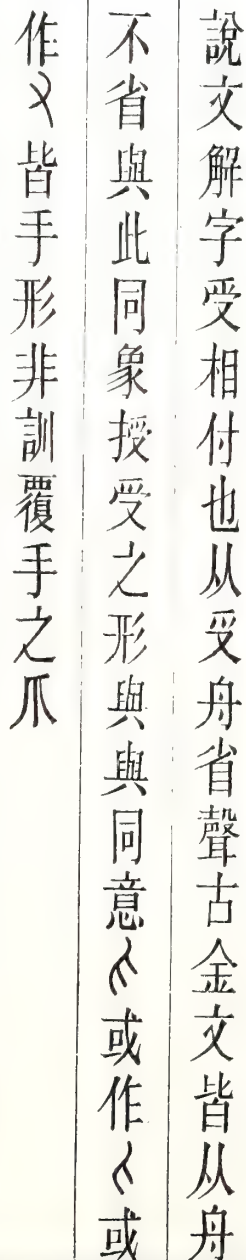 說文解字受相付也从𠬪舟省聲古金文皆从舟
不省與此同象授受之形與與同意或作或
作皆手形非訓覆手之爪